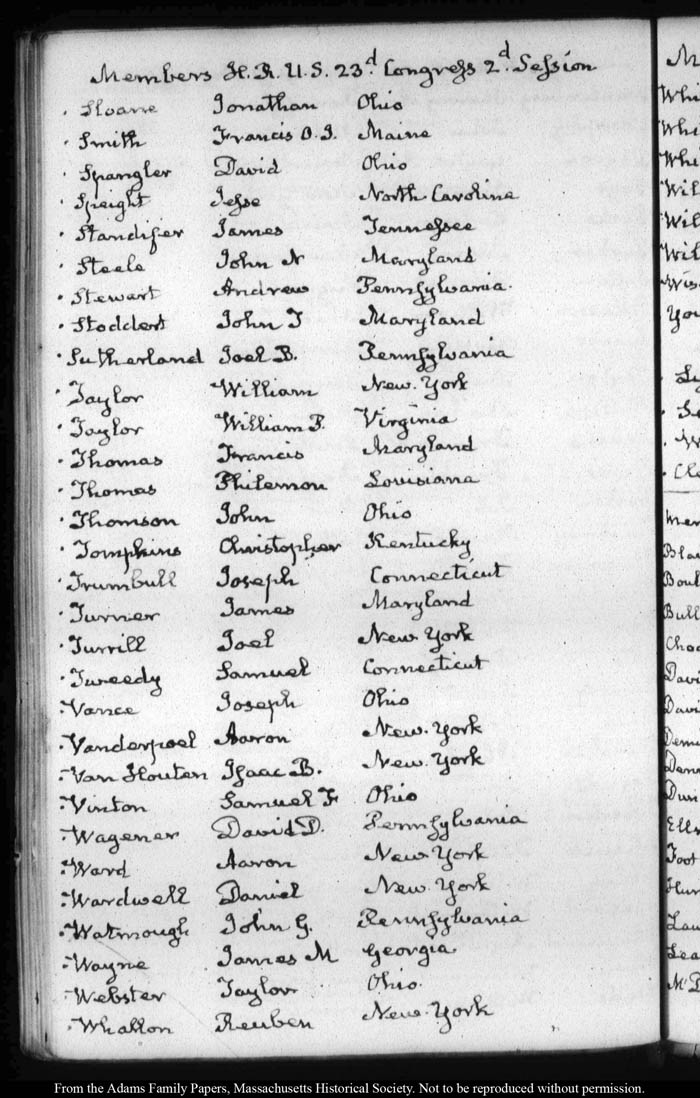 Members H.R.U.S. 23d. Congress 2d. Session
Sloane Jonathan Ohio
Smith Francis O.J. Maine
Spangler David Ohio
Speight Jesse North Carolina
Standifer James Tennessee
Steele John N Maryland
Stewart Andrew Pennsylvania.
Stoddert John T Maryland
Sutherland Joel B. Pennsylvania
Taylor William New-York
Taylor William P. Virginia
Thomas Francis Maryland
Thomas Philemon Louisiana
Thomson John Ohio
Tompkins Christopher Kentucky
Trumbull Joseph Connecticut
Turner James Maryland
Turrill Joel New-York
Tweedy Samuel Connecticut
Vance Joseph Ohio
Vanderpoel Aaron New-York
Van Houten Isaac B. New-York
Vinton Samuel F Ohio
Wagener David D. Pennsylvania
Ward Aaron New-York
Wardwell Daniel New-York
Watmough John G. Pennsylvania
Wayne James M Georgia
Webster Taylor Ohio.
Whallon Reuben New-York
From the Adams Family Papers, Massachusetts Historical Society. Not to be reproduced without permission.